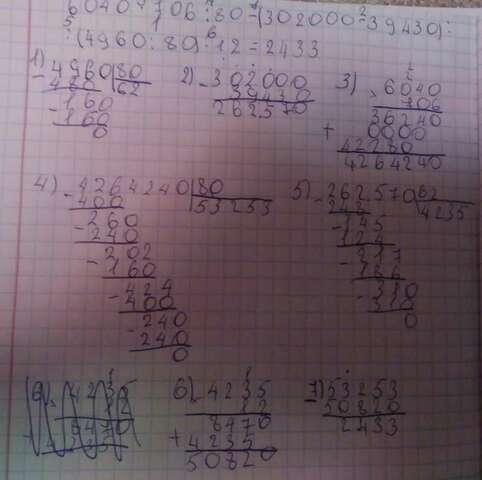 6040 · 706 : 80 - (302000 - 39430) :
: (4960 : 80) · 12 = 2433
1) - 4960 | 80
480 | 62
- 160
160
0
2) - 302000
39430
262570
3) × 6040
706
36240
+ 0000
42280
4264240
4) - 4264240 | 80
400 | 53253
- 260
240
- 202
160
- 424
400
- 240
240
0
5) - 262570 | 62
248 | 4235
- 145
124
- 217
186
- 310
310
0
6) 4235
12
8470
+ 4235
50820
7) 53253
50820
2433